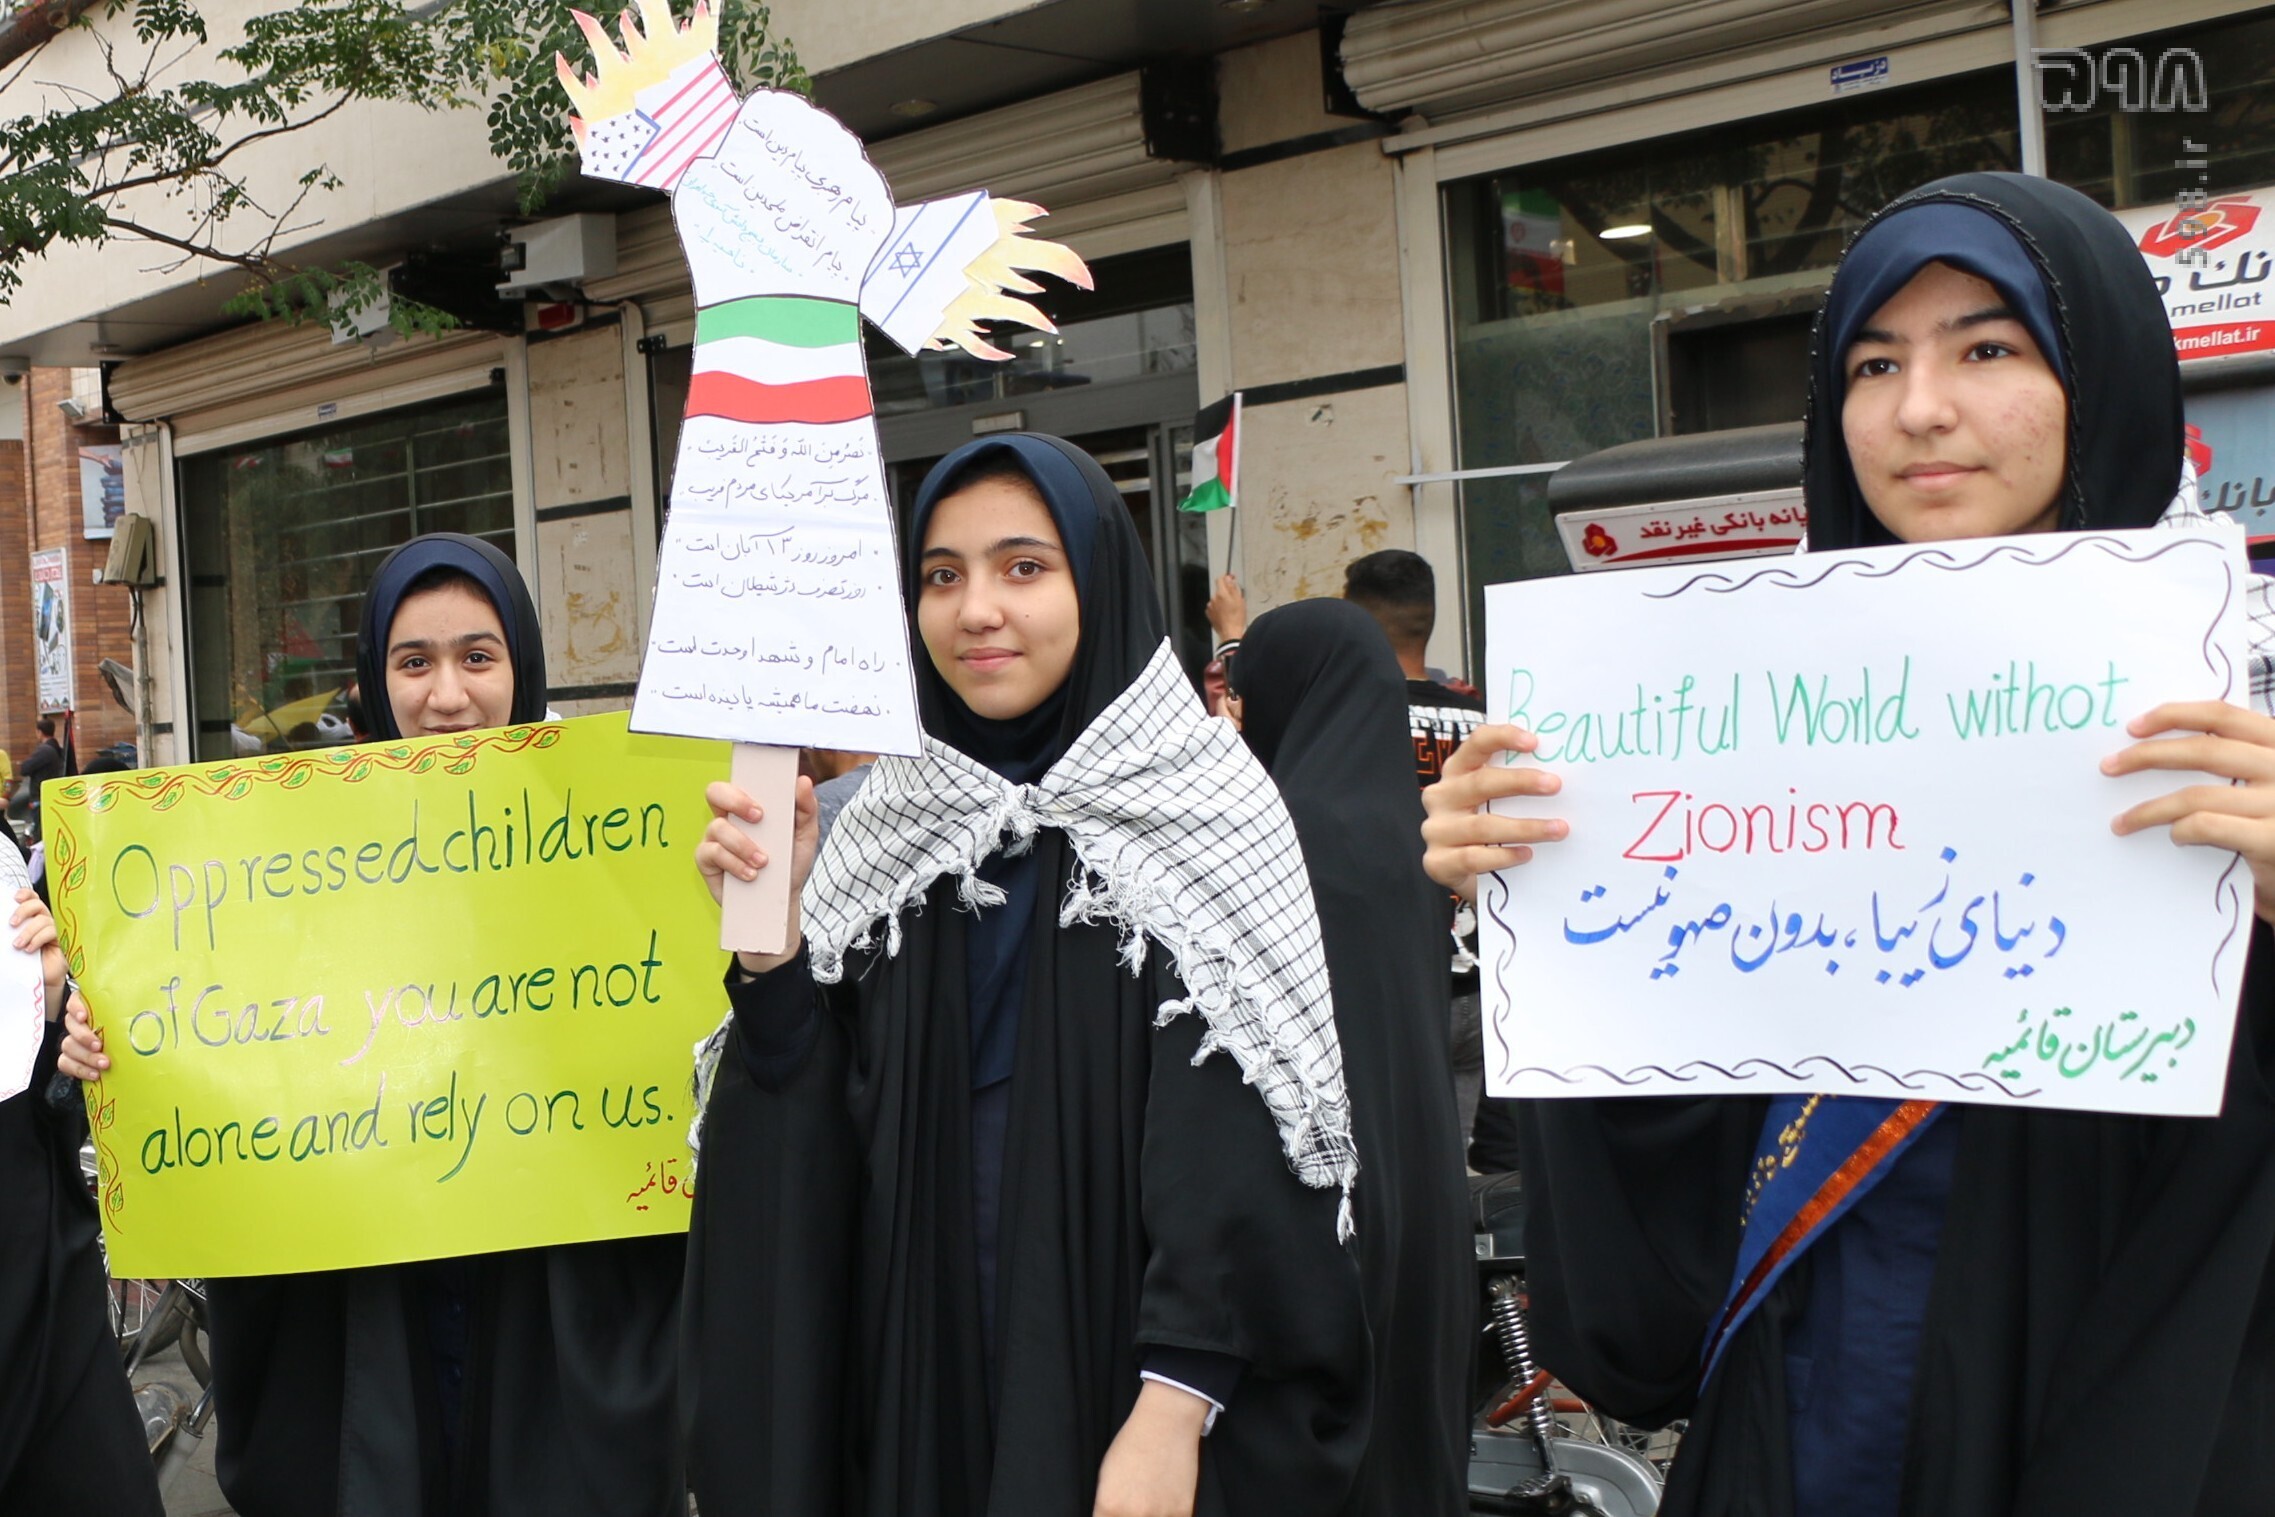 Oppressed children
of Gaza you are not
alone and rely on us.
قائمیه
پیام رهبری پیام دین است.
پیام انقراض ملحدین است.
نَصرٌ مِنَ اللّه وَ فَتحُ القَریبْ
مرگ بر آمریکای مردم فریب
امروز روز ۱۳ آبان است
روز تصرف دژ شیطان است
راه امام و شهدا وحدت است
نهضت ما همیشه پاینده است
Beautiful World withot
Zionism
دنیای زیبا، بدون صهونیست
دبیرستان قائمیه
دزیاد
۵۹۸
598.ir
mellat
kmellat.ir
یانه بانکی غیر نقد